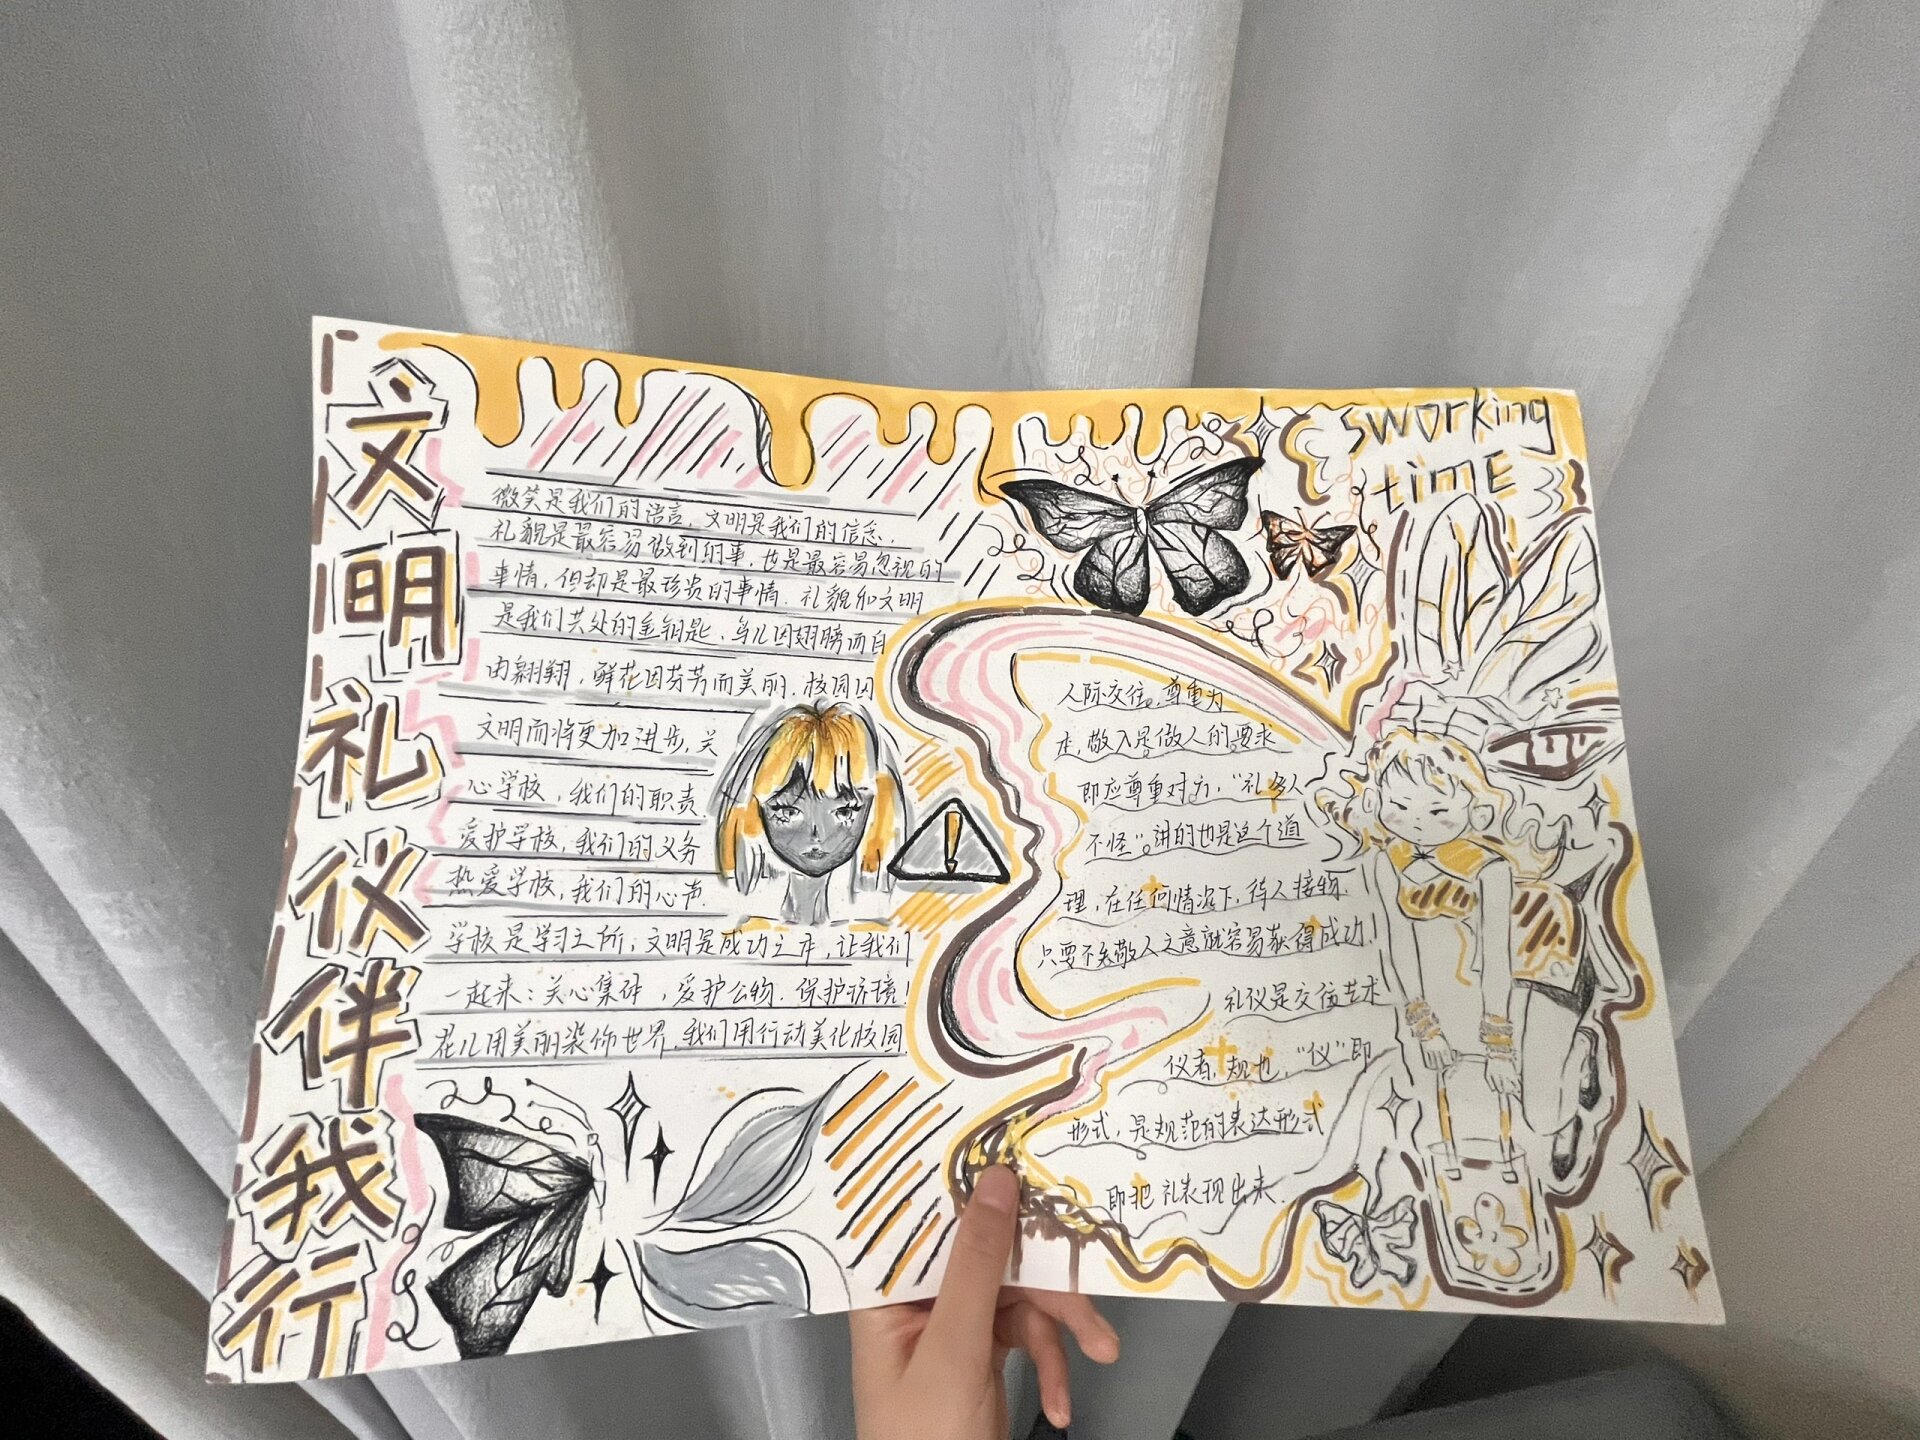 文明礼仪伴我行
sworking
time
微笑是我们的语言，文明是我们的信念.
礼貌是最容易做到的事，也是最容易忽视的
事情，但却是最珍贵的事情.礼貌和文明
是我们共处的金钥匙.鸟儿因翅膀而自
由翱翔，鲜花因芬芳而美丽.校园因
文明而将更加进步，关
心学校，我们的职责.
爱护学校，我们的义务
热爱学校，我们的心声.
学校是学习之所；文明是成功之本，让我们
一起来：关心集体，爱护公物.保护环境！
花儿用美丽装饰世界.我们用行动美化校园
人际交往，尊重为
本，敬人是做人的要求
即应尊重对方，“礼多人
不怪”讲的也是这个道
理，在任何情况下，待人接物.
只要不失敬人之意就容易获得成功！
礼仪是交往艺术
仪者，规也，“仪”即
形式，是规范的表达形式
即把礼表现出来.